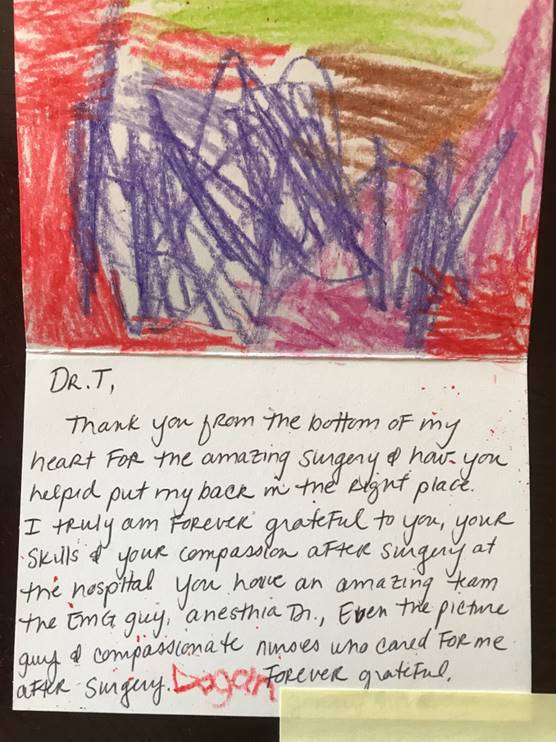 DR. T,
Thank you from the bottom of my
heart for the amazing surgery & how you
helped put my back in the right place.
I truly am forever grateful to you, your
skills & your compassion after surgery at
the hospital you have an amazing team
the EMG guy, anesthia Dr., Even the picture
guy & compassionate nurses who cared for me
after surgery. Forever grateful.